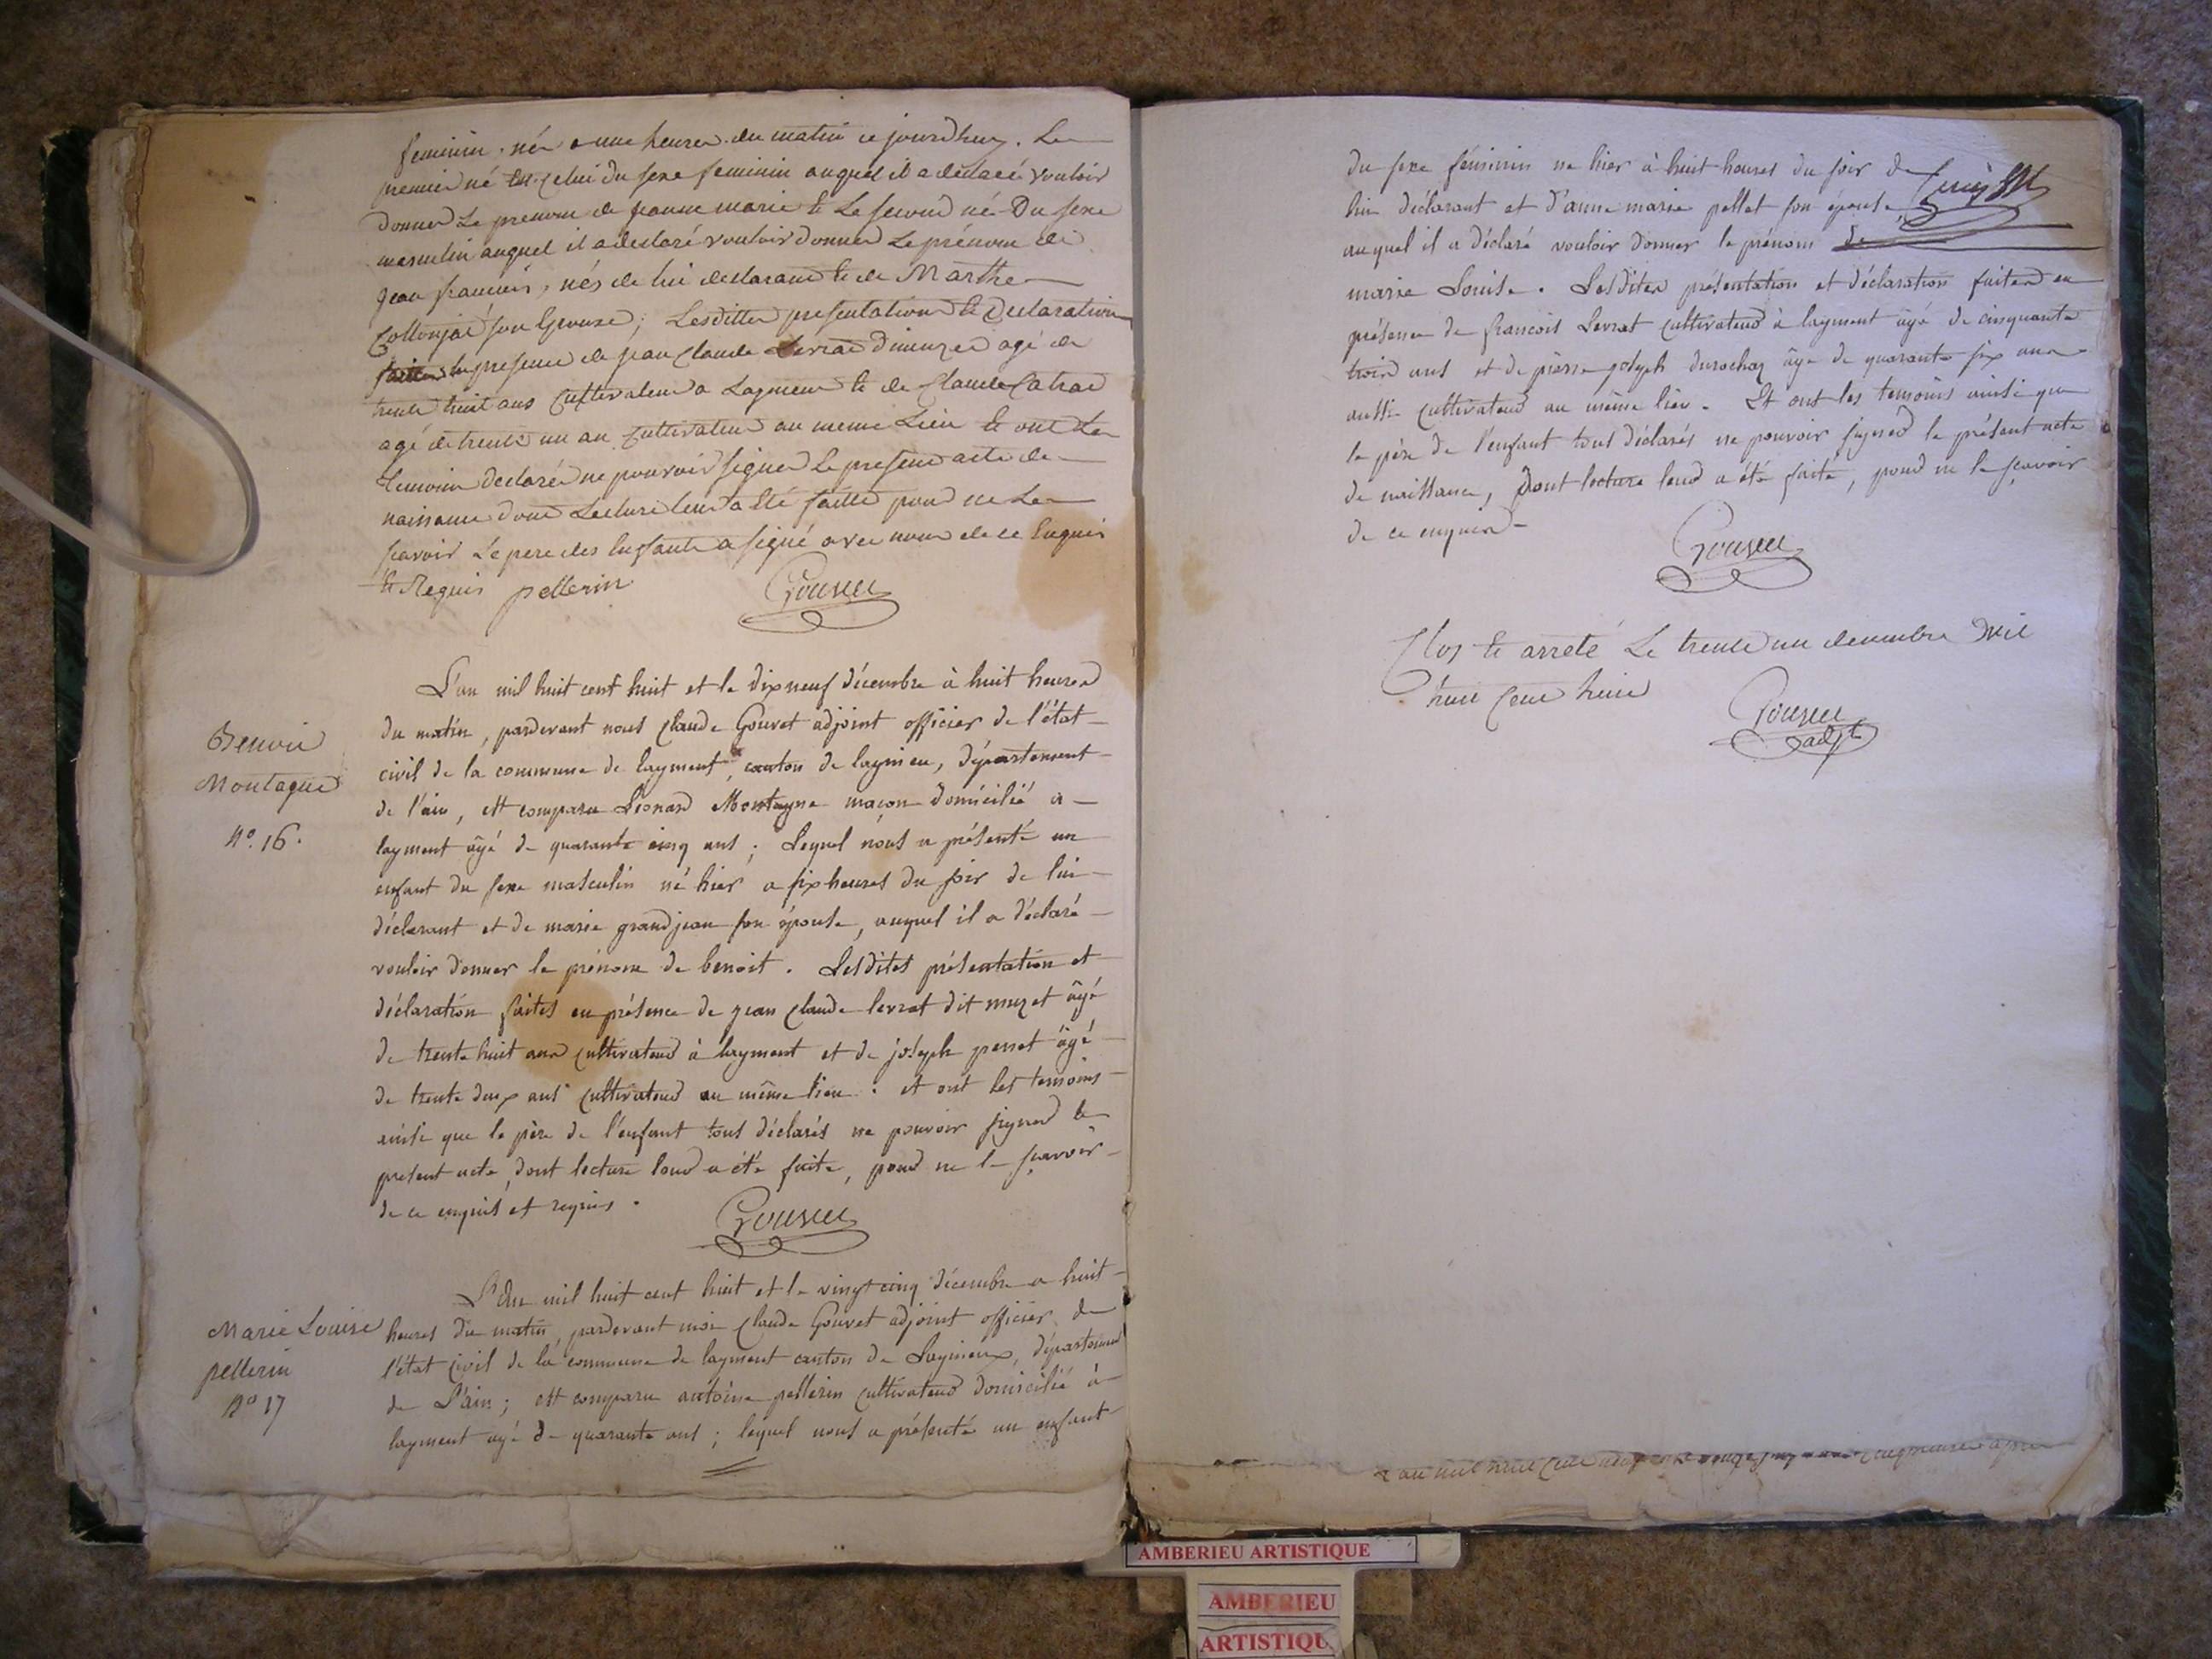 feminin. née a une heures du matin ce jourdhuy. Le
premier né est celui du sexe feminin auquel il a declaré vouloir
donner Le prenom de jeanne marie & Le second né Du sexe
masculin auquel il a declaré vouloir donner Le prénom de
jean francois, nés de lui declarant & de Marthe
son Epouse; Lesdittes presentation & Declaration
faittes En presence de jean Claude Levrat agé de
trente huit ans Cultivateur a Lagment & de Claude
agé de trente un an Cultivateur au meme Lieu & ont Les
temoins declarés ne pouvoir signer Le present acte de
naissance dont Lecture leur a Eté faitte pour ne Le
scavoir Le pere des Enfants a signé avec nous de ce Enquis
& Requis pellerin Gouvet
L'an mil huit cent huit et le dix neuf décembre à huit heures
du matin, pardevant nous Claude Gouvet adjoint officier de l'état
Benoit
Montagne
n° 16.
civil de la commune de layment, canton de lagnieu, département
de l'ain, est comparu Léonard Montagne maçon domicilié a
layment âgé de quarante cinq ans; Lequel nous a présenté un
enfant du sexe masculin né hier a six heures du soir de lui
déclarant et de marie grandjean son épouse, auquel il a déclaré
vouloir donner le prénom de benoit. Lesdites présentation et
déclaration faites en présence de jean Claude levrat dit muzet âgé
de trente huit ans cultivateur à layment et de joseph perret âgé
de trente deux ans cultivateur au même lieu: et ont les temoins
ainsi que le père de l'enfant tous déclarés ne pouvoir signer le
present acte, dont lecture leur a été faite, pour ne le scavoir
de ce enquis et requis.
Gouvet
L'An mil huit cent huit et le vingt cinq décembre a huit
Marie Louise
pellerin
n° 17
heures du matin, pardevant moi Claude Gouvet adjoint officier de
l'état civil de la commune de layment canton de Lagnieux, département
de L'ain; est comparu antoine pellerin cultivateur domicilié à
layment agé de quarante ans; lequel nous a présenté un enfant
du sexe féminin ne hier à huit heures du soir de
lui déclarant et d'anne marie pellet son épouse
auquel il a déclaré vouloir donner le prénom de
marie Louise. Lesdites présentation et déclaration faites en
présence de francois Levrat cultivateur à layment âgé de cinquante
trois ans et de pierre joseph durochat âgé de quarante six ans
aussi cultivateur au même lieu. Et ont les temoins ainsi que
le père de l'enfant tous déclarés ne pouvoir signer le présent acte
de naissance, dont lecture leur a été faite, pour ne le scavoir
de ce enquis
Gouvet
Clos & arreté Le trente un decembre Mil
huit Cent huit
Gouvet
adjt
AMBERIEU ARTISTIQUE
AMBERIEU
ARTISTIQU